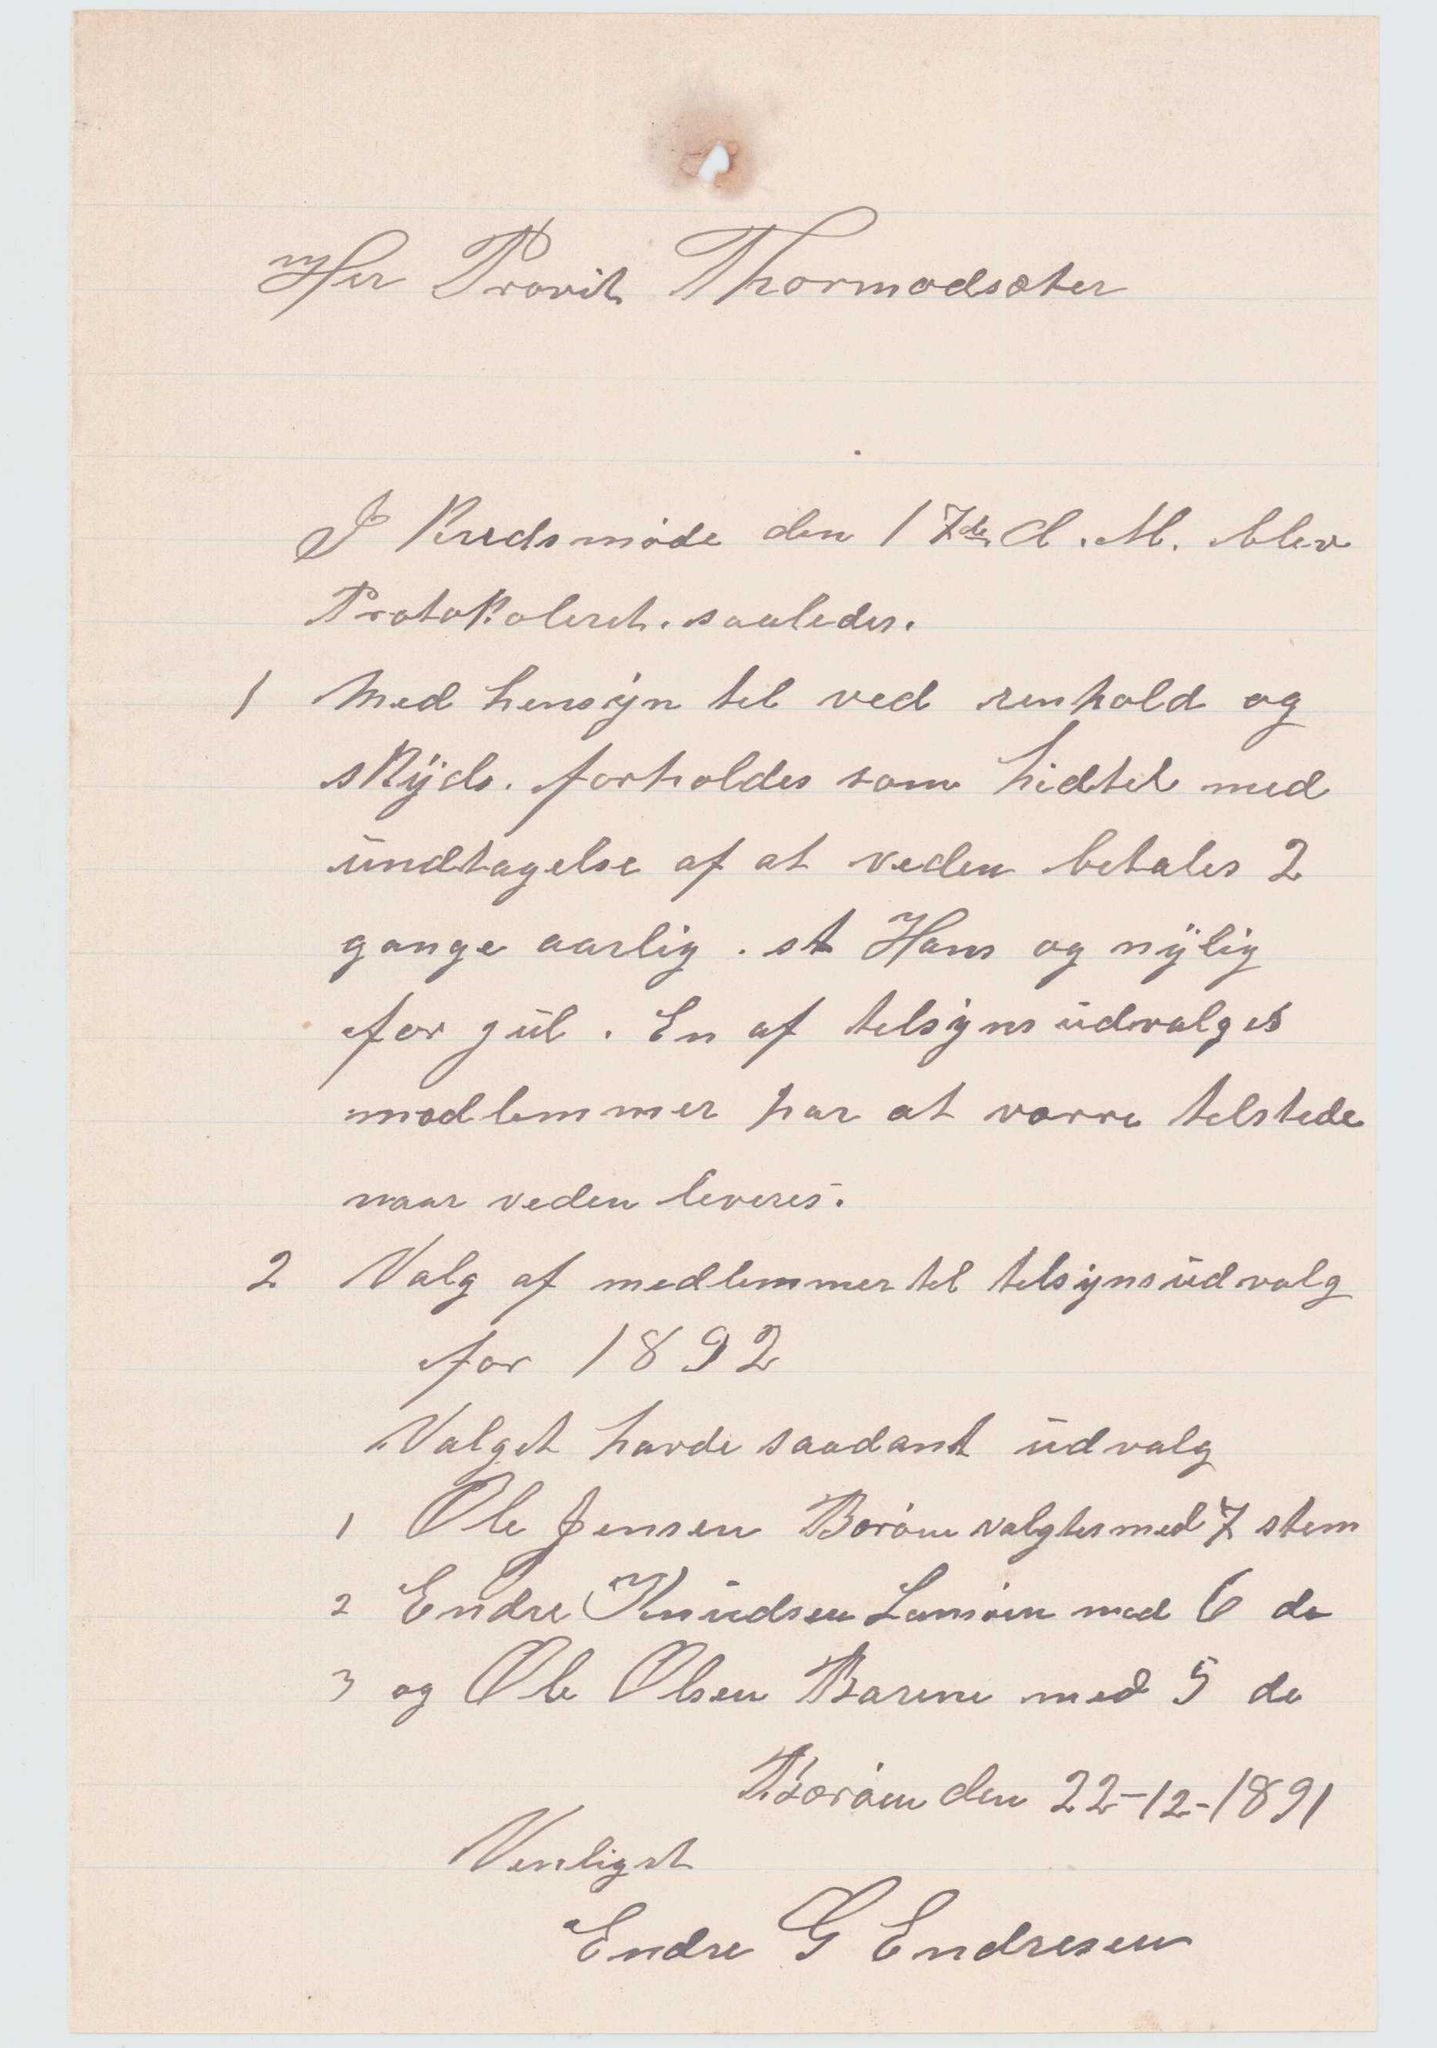 Her Provst Thormodsæter
I Kredsmøde den 17de d. M. blev
Protokoleret. saaledes.
1 Med hensyn til ved renhold og
skyds. forholdes som hidtil med
undtagelse af at veden betales 2
gange aarlig. st Hans og nylig
før jul. En af tilsynsudvalges
medlemmer har at være tilstede
naar veden leveres.
2 Valg af medlemmer til tilsynsudvalg
for 1892
Valget havde saadant udvalg
1 Ole Jensen Borøen valgtes med 7 stem
2 Endre Knudsen med 6 do
3 og Ole Olsen med 5 do
Borøen den 22-12-1891
Venligst
Endre G Endresen